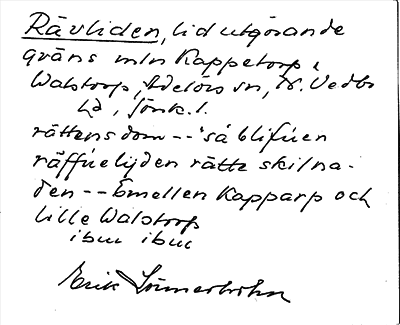 Rävliden, lid utgörande
gräns mln Kappetorp,
Walstorp, Adelövs sn, N. Vedbo
hd, Jönk. l.
rättens dom -- "så blifuen
räffuelijden rätte skilna-
den -- Emellen Kapparp och
lille Walstorp
ibm ibm
Erik